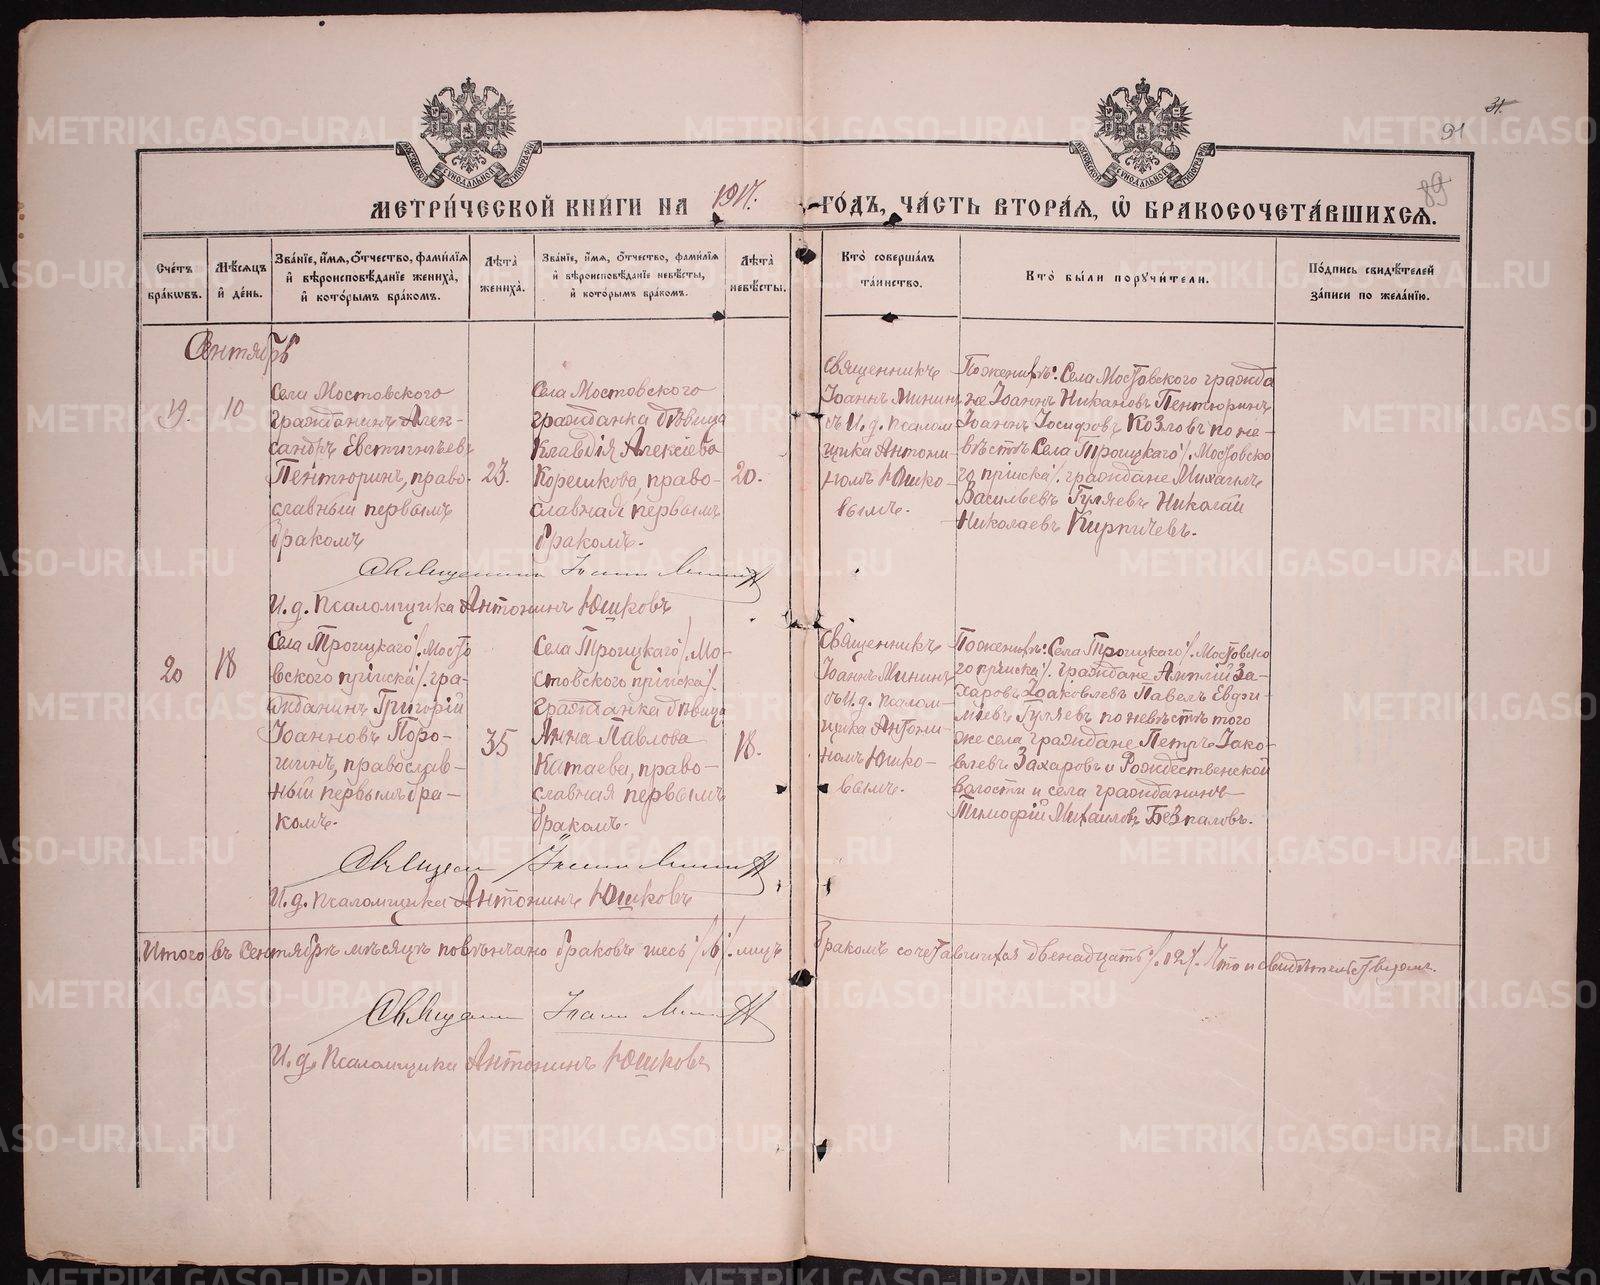 31.
91
89
МОСКОВСКОЙ СѴНОДАЛЬНОЙ ТИПОГРАФІИ
МОСКОВСКОЙ СѴНОДАЛЬНОЙ ТИПОГРАФІИ
МЕТРИ́ЧЕСКОЙ КНИ́ГИ НА 1917. ГО́ДЪ, ЧА́СТЬ ВТОРА́Ѧ, Ѡ҆ БРАКОСОЧЕТА́ВШИХСѦ.
Сче́тъ бра́кѡвъ.
Мѣ́сѧцъ и҆ де́нь.
Зва́нїе, и҆́мѧ, ѻ҆́тчество, фами́лїѧ и҆ вѣроисповѣ́данїе жениха̀, и҆ кото́рымъ бра́комъ.
Лѣ́та жениха̀.
Зва́нїе, и҆́мѧ, ѻ҆́тчество, фами́лїѧ и҆ вѣроисповѣ́данїе невѣ́сты, и҆ кото́рымъ бра́комъ.
Лѣ́та невѣ́сты.
Кто̀ соверша́лъ та́инство.
Кто̀ бы́ли поручи́тели.
По́дпись свидѣ́телей за́писи по жела́нїю.
Сентябрь
19.
10
Села Мостовского
гражданинъ Алек-
сандръ Евстигнѣевъ
Пентюринъ, право-
славный первымъ
бракомъ
23.
Села Мостовского
гражданка дѣвица
Клавдія Алексіева
Корешкова, право-
славная первымъ
бракомъ.
20.
Священникъ
Іоаннъ Мининъ
съ И. д. псалом
щика Антони-
номъ Юшко-
вымъ.
По женихѣ: Села Мостовского гражда
не Іоаннъ Никановъ Пентюринъ
Іоаннъ Іосифовъ Козловъ по не-
вѣстѣ Села Троицкаго /. Мостовско
го пріиска /. граждане Михаилъ
Васильевъ Гуляевъ Николай
Николаевъ Кирпичевъ.
Священникъ Іоаннъ Мининъ
И. д. псаломщика Антонинъ Юшковъ
20
18
Села Троицкаго /. Мосто
вского пріиска /. гра-
жданинъ Григорій
Іоанновъ Поро-
шинъ, православ-
ный первымъ бра-
комъ.
35
Села Троицкаго /. Мо-
стовского пріиска /.
гражданка дѣвица
Анна Павлова
Катаева, право-
славная первымъ
бракомъ.
18.
Священникъ
Іоаннъ Мининъ
съ И. д. псалом-
щика Антони-
номъ Юшко-
вымъ.
По женихѣ: Села Троицкаго /. Мостовско
го пріиска /. граждане За-
харовъ Іаковлевъ Павелъ Евдо-
кіевъ Гуляевъ по невѣстѣ того
же села граждане Петръ Іако-
влевъ Захаровъ и Рождественской
волости и села гражданинъ
Тимофій Михаиловъ Безпаловъ.
Священникъ Іоаннъ Мининъ
И. д. псаломщика Антонинъ Юшковъ
Итого въ Сентябрѣ мѣсяцѣ повѣнчано браковъ шесть /. 6 /. лицъ бракомъ сочетавшихся двенадцать /. 12 /. Что и свидѣтельствуемъ.
Священникъ Іоаннъ Мининъ
И. д. Псаломщика Антонинъ Юшковъ
METRIKI.GASO-URAL.RU